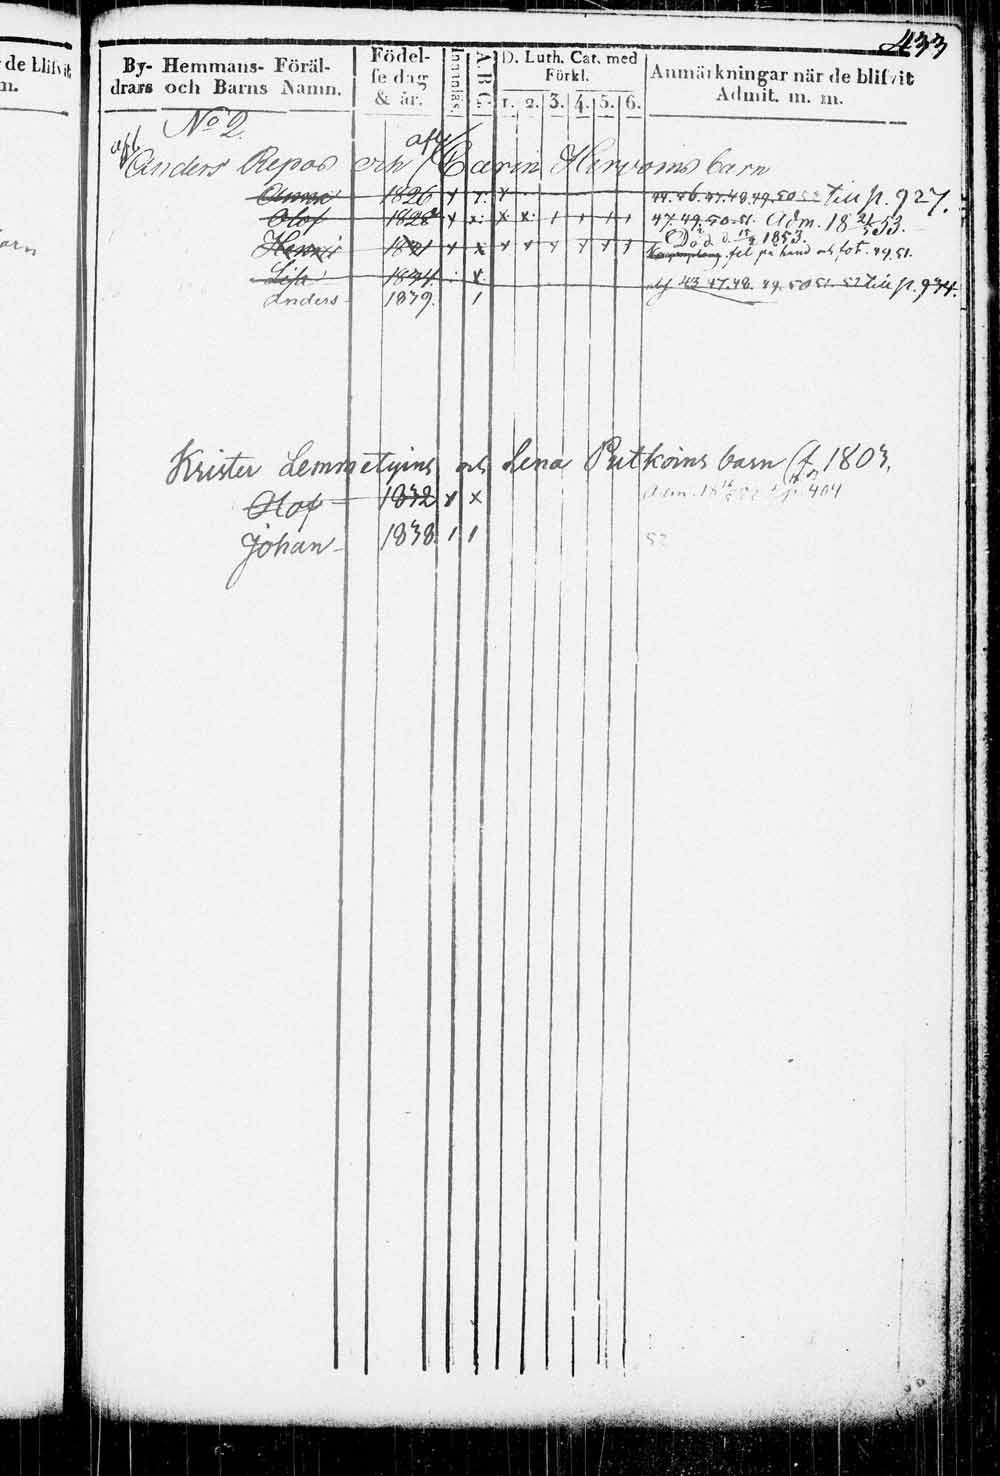 433
de blifvit
m.
By- Hemmans- Föräl-
drars och Barns Namn.
Födel-
se dag
& år.
Innanläs
A B C.
D. Luth. Cat. med
Förkl.
1. 2. 3. 4. 5. 6.
Anmärkningar när de blifvit
Admit. m. m.
No 2
Anders Repos och Carin Hervoins barn
Anna 1826 44. 46. 47. 48. 49. 50 52 till p. 927.
Olof 1828 47. 49. 50. 51. Adm. 18 21/5 53.
Död d. 1853.
Henric fel på hand och fot. 49. 51.
Lisa 1834. 43 47. 48. 49. 50 51. 52 till p. 934.
Anders 1839.
Krister Lemmetyins och Lena Putkoins barn (f. 1803,
Olof 1832 x x Adm. 18 p. 404
Johan 1838. 52